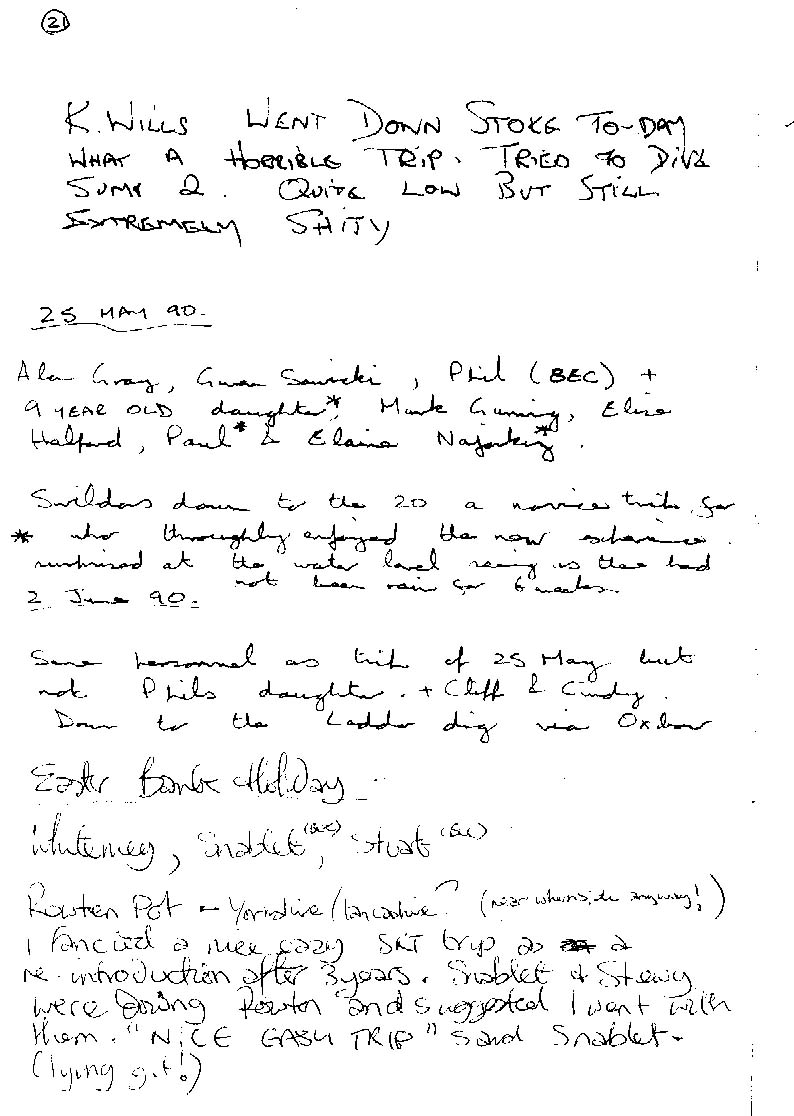 21
K. WILLS WENT DOWN STOKE TO-DAY
WHAT A HORRIBLE TRIP. TRIED TO DIVE
SUMP 2. QUITE LOW BUT STILL
EXTREMELY SHITY
25 MAY 90.
Alan Gray, Sawicki, Phil (BEC) +
9 YEAR OLD daughter*, Mark, Elise
Halford, Paul* & Elaine *.
Swildons down to the 20 a novice trip for
* who thoroughly enjoyed the new experience.
surprised at the water level seeing as there had
not been rain for 6 weeks.
2 June 90.
Same personnel as trip of 25 May but
not Phils daughter. + Cliff & Cindy.
Down to the Ladder dig via Oxbow
Easter Bank Holiday
Snablet,
Rowten Pot - Yorkshire/Lancashire? (near whernside anyway!)
I fancied a nice easy SRT trip as a
re-introduction after 3 years. Snablet & Stewy
were doing Rowten and suggested I went with
them. "NICE EASY TRIP" said Snablet -
(lying git!)